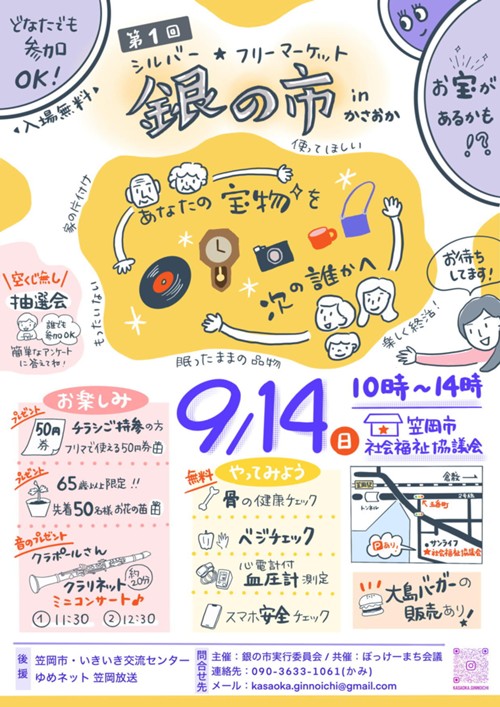 どなたでも
参加
OK!
入場無料
第1回
シルバー★フリーマーケット
銀の市 in
かさおか
お宝が
あるかも
!?
使ってほしい
家の片付け
あなたの宝物を
次の誰かへ
もったいない
眠ったままの品物
楽しく終活!
お待ち
してます!
空くじ無し
抽選会
誰でも
参加OK
簡単なアンケート
に答えてね!
お楽しみ
プレゼント
50円
券
チラシご持参の方
フリマで使える50円券
プレゼント
65歳以上限定!!
先着50名様お花の苗
音のプレゼント
クラポールさん
クラリネット
約20分
ミニコンサート♪
① 11:30 ② 12:30
9/14 日
10時〜14時
笠岡市
社会福祉協議会
無料
やってみよう
骨の健康チェック
ベジチェック
心電計付
血圧計測定
スマホ安全チェック
倉敷→
2号線
トンネル
Pあり
サンライフ
★社会福祉協議会
大島バーガーの
販売あり!
後援
笠岡市・いきいき交流センター
ゆめネット 笠岡放送
問合せ先
主催:銀の市実行委員会 / 共催:ぽっけーまち会議
連絡先:090-3633-1061(かみ)
メール:kasaoka.ginnoichi@gmail.com